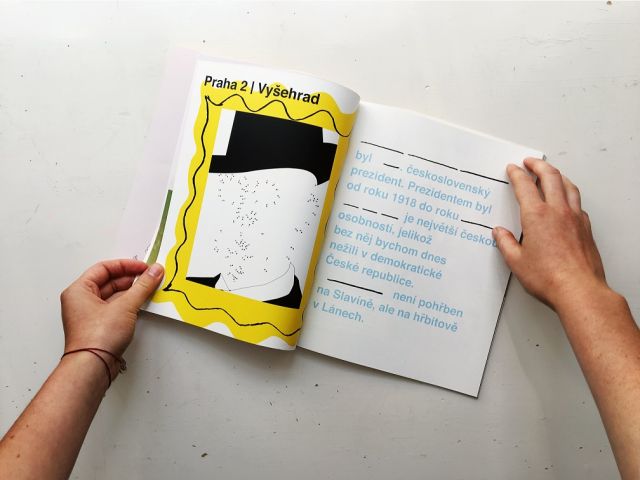 Praha 2 | Vyšehrad
byl __. československý
prezident. Prezidentem byl
od roku 1918 do roku ____
__ __ __ je největší českou
osobností, jelikož
bez něj bychom dnes
nežili v demokratické
České republice.
____ není pohřben
na Slavíně, ale na hřbitově
v Lánech.